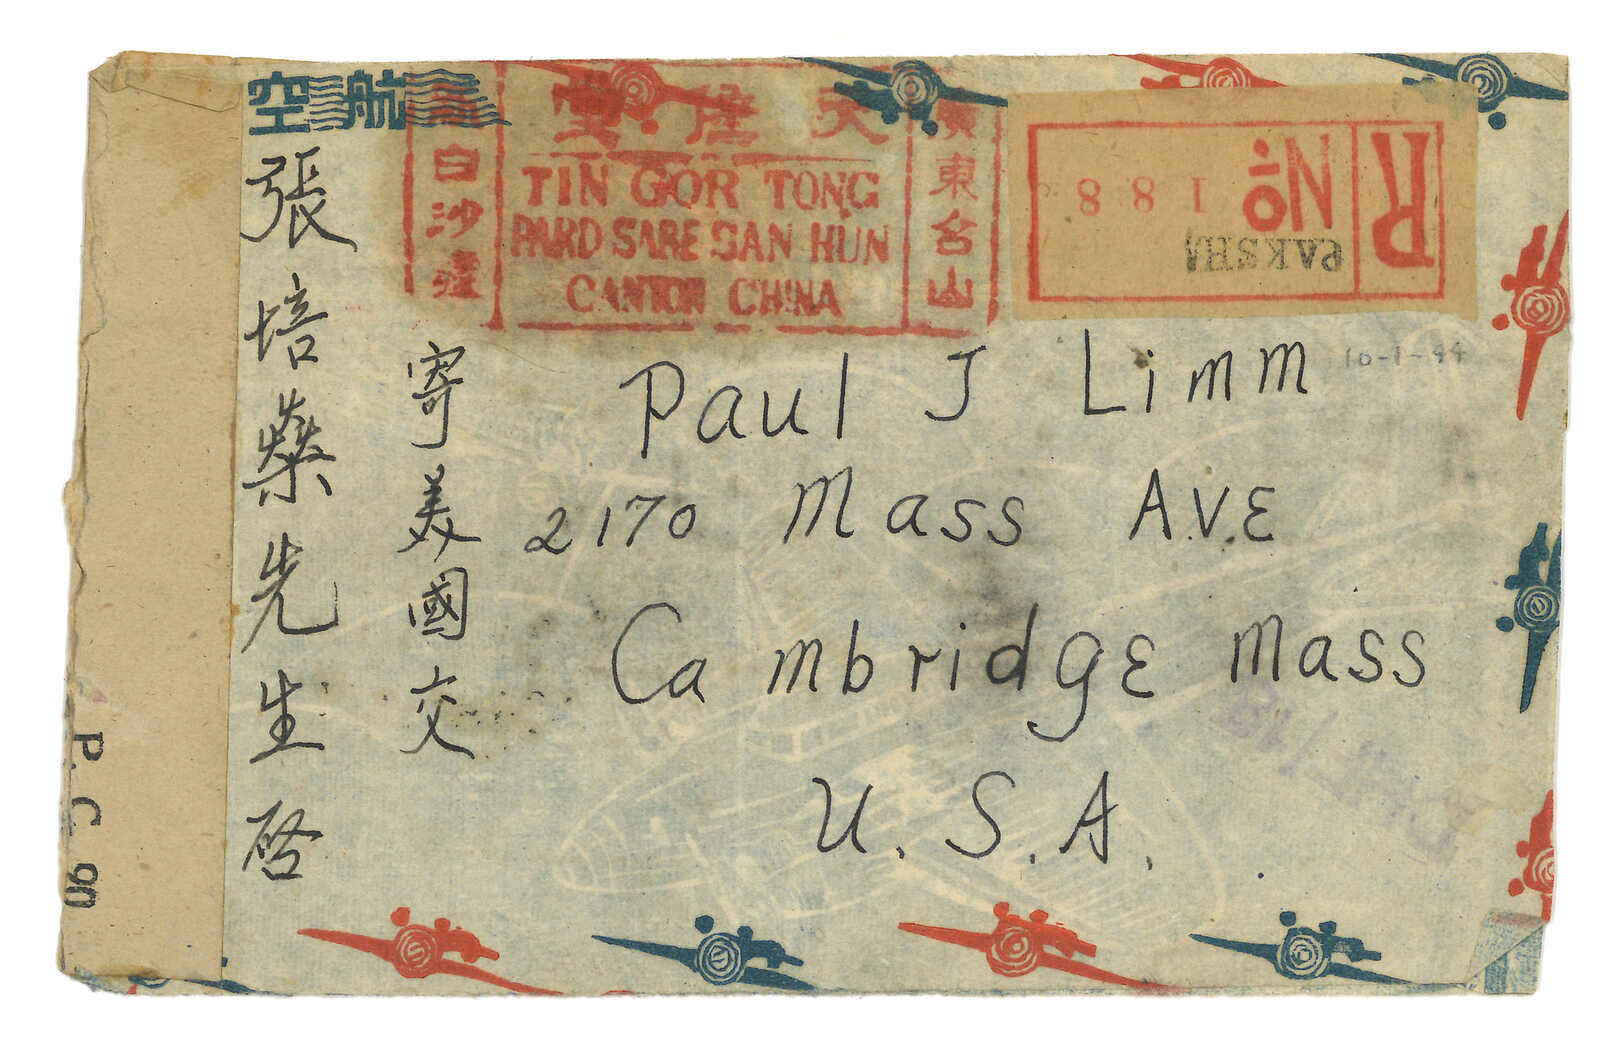 航空
天產堂
TIN GOR TONG
PARD SARE SAN HUN
CANTON CHINA
廣東台山
白沙
R No 188
PAKSHA
10-1-44
Paul J Limm
2170 Mass AVE
Cambridge Mass
U.S.A.
寄美國交
張培藥先生啓
P. C. 90